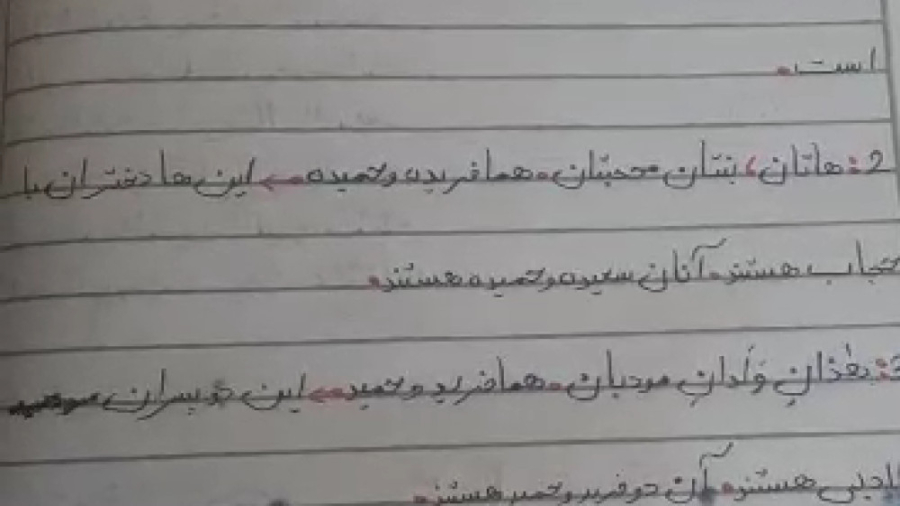 است.
2: هاتان، بنتان محجبتان. هما فریده و حمیده ← این ها دختران با
حجاب هستند. آنان سعیده و حمیده هستند.
هذان وَلَدانِ مودبان. هما فرید و حمید ← این دو پسران
هستند. آن دو فرید و حمید هستند.